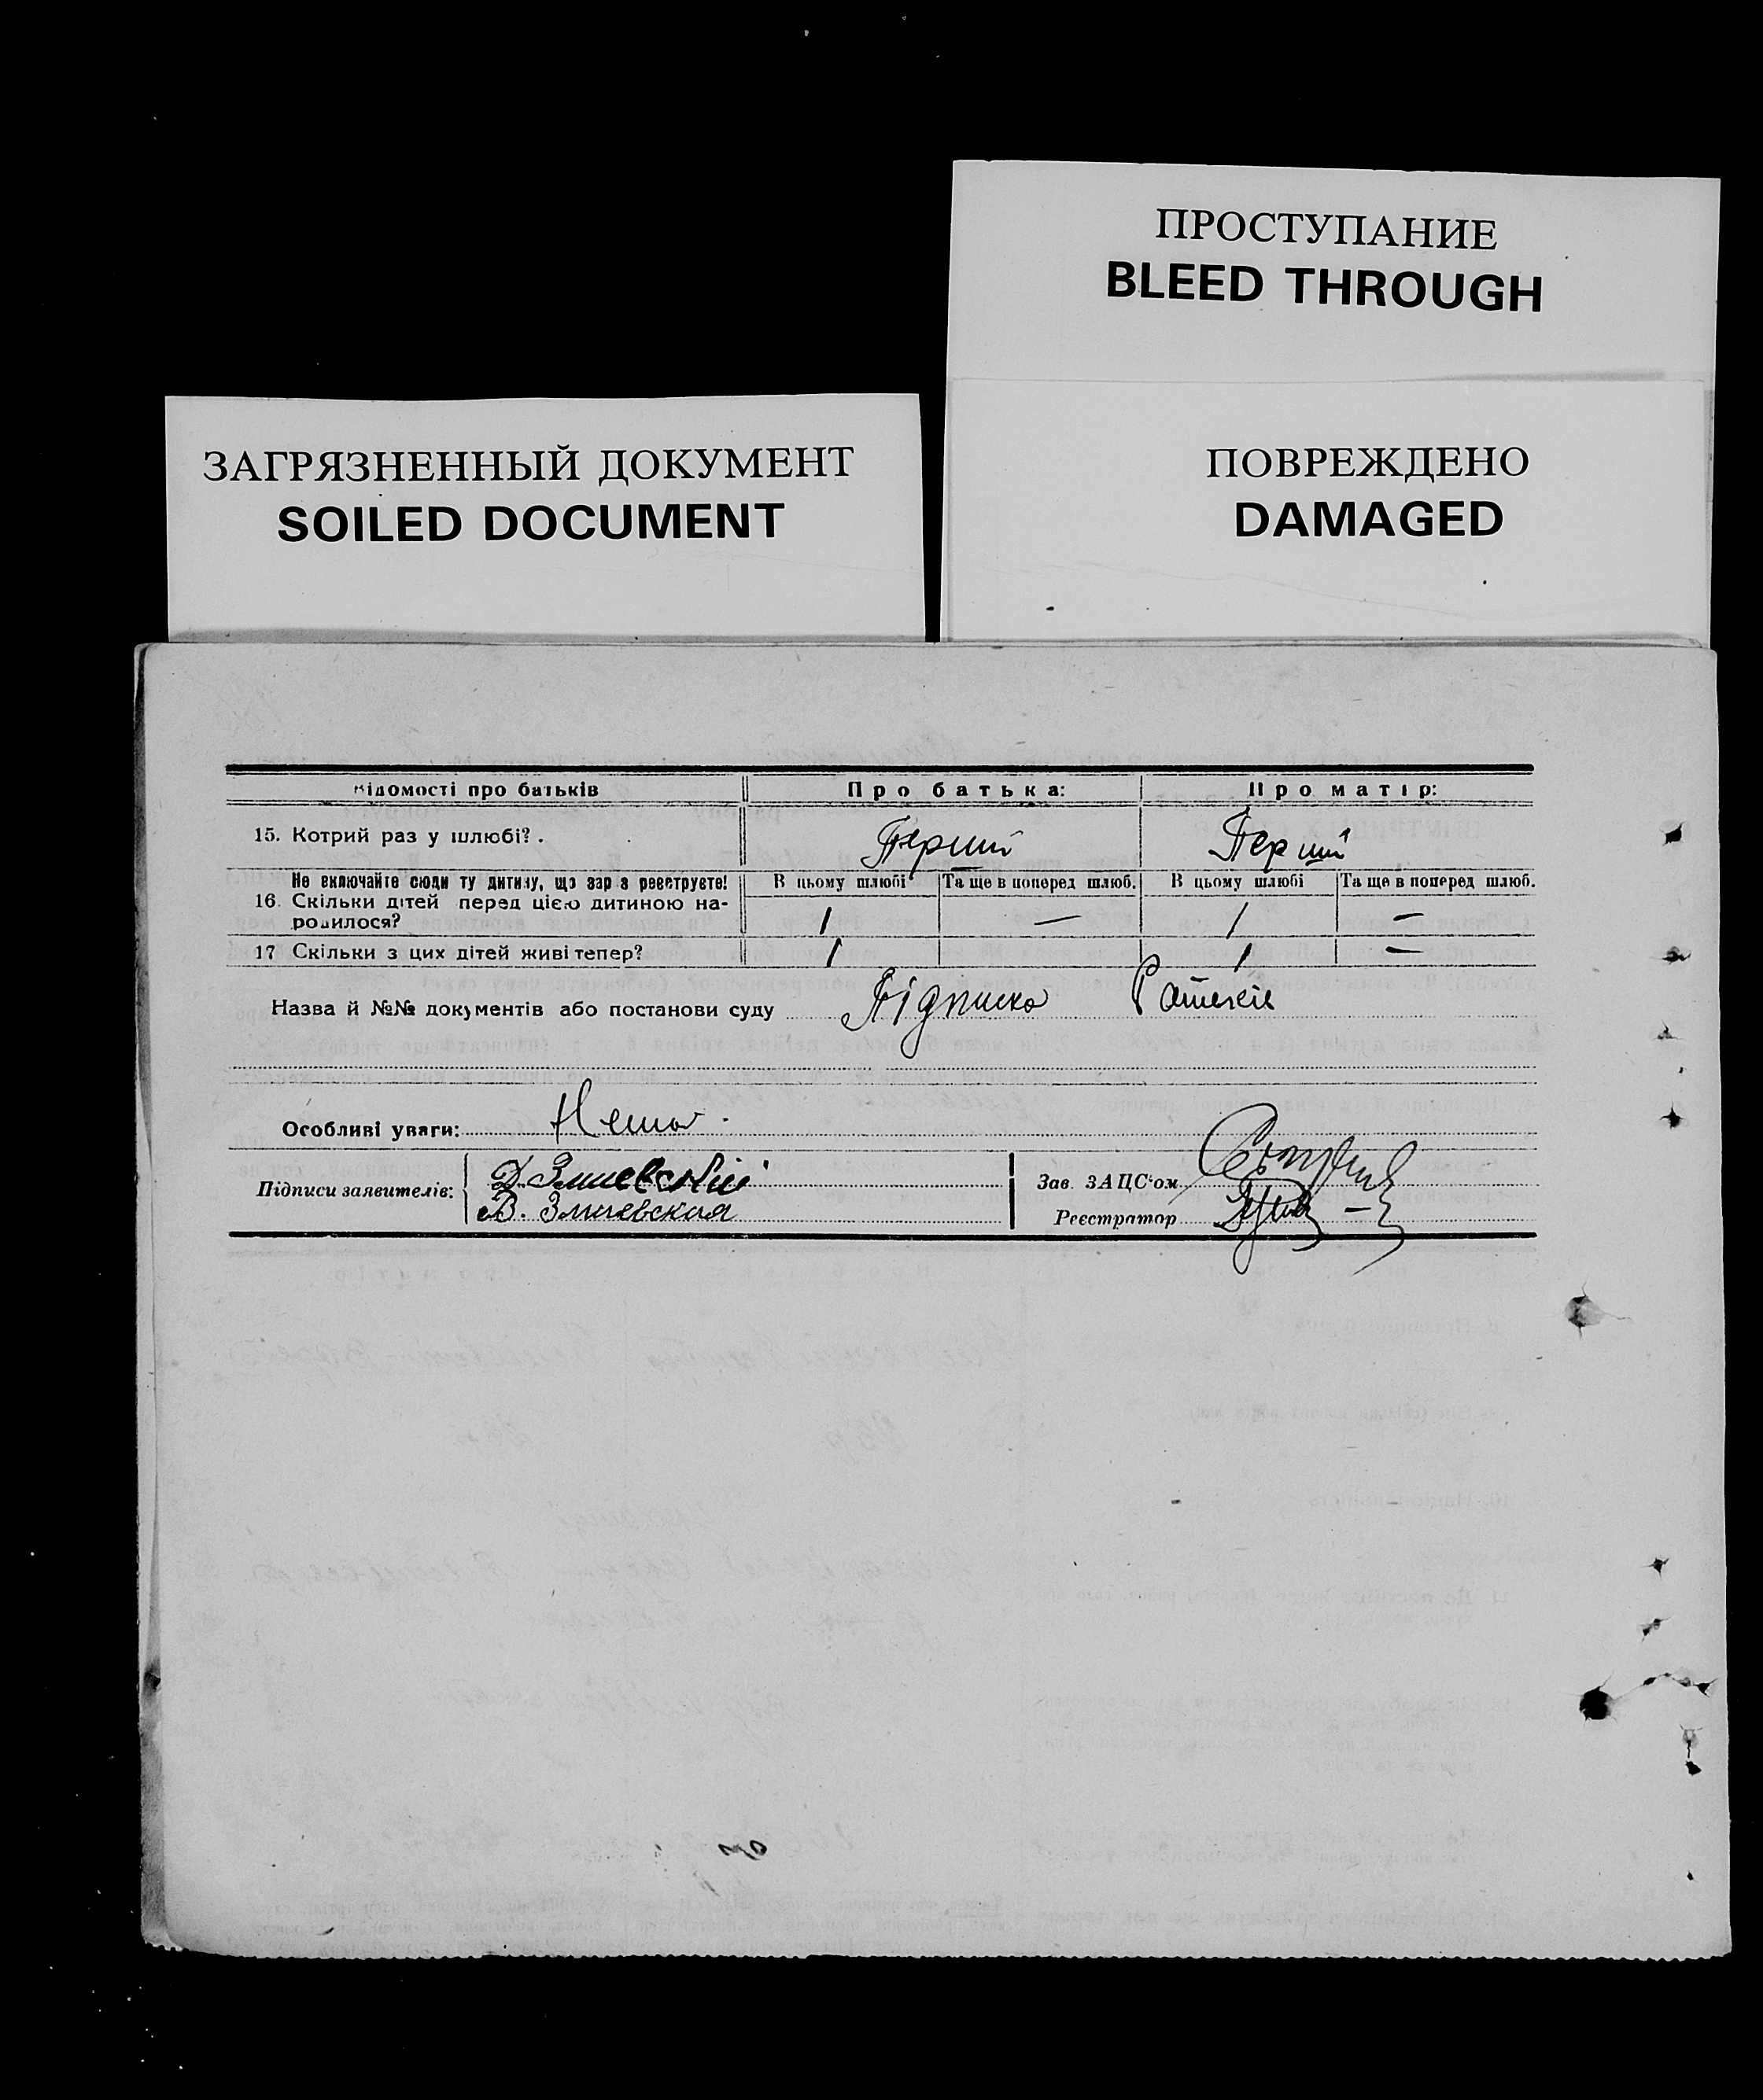 ПРОСТУПАНИЕ
BLEED THROUGH
ЗАГРЯЗНЕННЫЙ ДОКУМЕНТ
SOILED DOCUMENT
ПОВРЕЖДЕНО
DAMAGED
Відомості про батьків Про батька: Про матір:
15. Котрий раз у шлюбі? . Перший Перший
Не включайте сюди ту дитину, що зараз реєструєте! В цьому шлюбі Та ще в поперед шлюб. В цьому шлюбі Та ще в поперед шлюб.
16. Скільки дітей перед цією дитиною на-
родилося? 1 — 1 —
17 Скільки з цих дітей живі тепер? 1 1 —
Назва й №№ документів або постанови суду Підписка
Особливі уваги: Нема.
Підписи заявителів: Д. Змиевский
В. Змиевская
Зав. ЗАЦС‘ом
Реєстратор